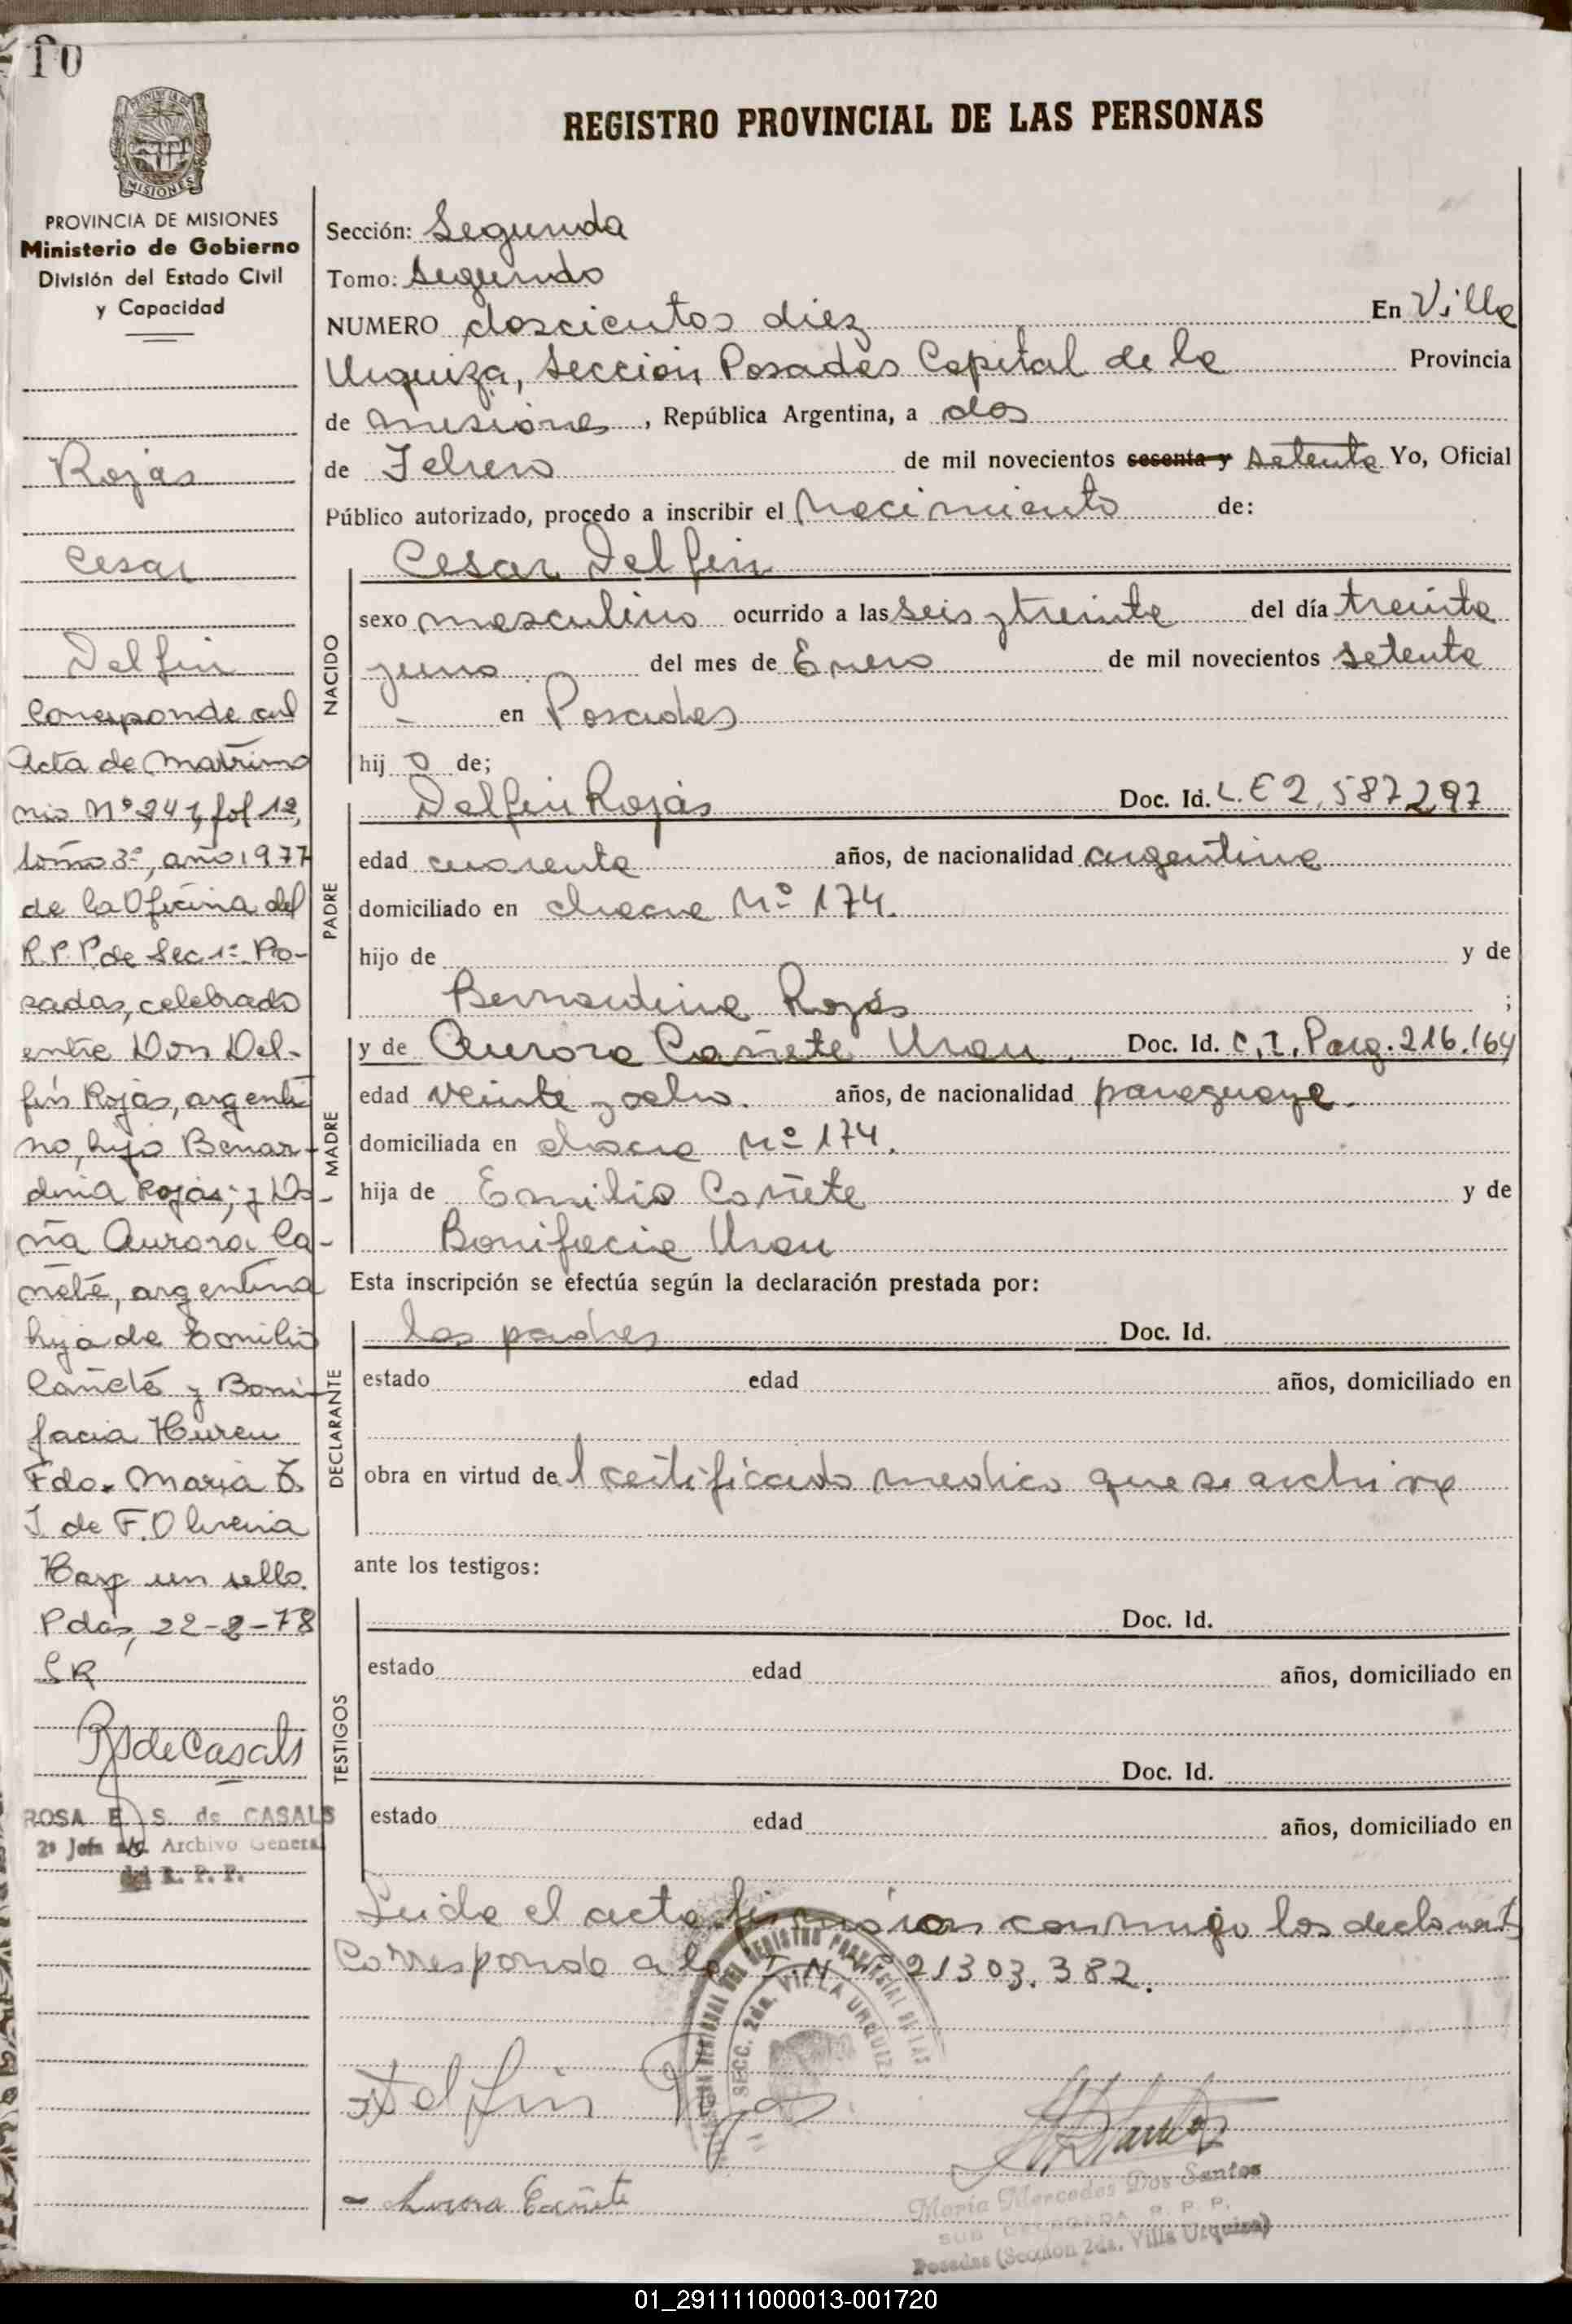 10
PROVINCIA DE MISIONES
MISIONES
PROVINCIA DE MISIONES
Ministerio de Gobierno
División del Estado Civil
y Capacidad
Rojas
Cesar
Delfin
Corresponde al
Acta de Matrimo
nio Nº 241, fol 12,
tomo 3º, año 1977
de la Oficina del
R.P.P. de Sec 1ª Po-
sadas, celebrado
entre Don Del-
fin Rojas, argenti
no, hijo Benar-
dina Rojas; y Do-
ña Aurora Ca-
ñete, argentina
hija de Emilio
Cañete y Boni-
facia Huren
Fdo. Maria E.
I. de F. Olivera
Hay un sello.
Pdas, 22-2-78
SR
RSdeCasals
ROSA E. S. de CASALS
2º Jefa a/c. Archivo General
del R. P. P.
REGISTRO PROVINCIAL DE LAS PERSONAS
Sección: Segunda
Tomo: Segundo
NUMERO doscientos diez En Villa
Urquiza, Sección Posadas Capital de la Provincia
de Misiones, República Argentina, a dos
de Febrero de mil novecientos sesenta y setenta Yo, Oficial
Público autorizado, procedo a inscribir el Nacimiento de:
Cesar Delfin
NACIDO
sexo masculino ocurrido a las seis y treinta del día treinta
y uno del mes de Enero de mil novecientos setenta
- en Posadas
hij o de;
PADRE
Delfin Rojas Doc. Id. L.E 2.587297
edad cuarenta años, de nacionalidad argentina
domiciliado en chacra Nº 174.
hijo de y de
Bernardina Rojas ;
MADRE
y de Aurora Cañete Uran. Doc. Id. C.I. Parg. 216.164
edad veinte y ocho. años, de nacionalidad paraguaya.
domiciliada en chacra Nº 174.
hija de Emilio Cañete y de
Bonifacia Uran
Esta inscripción se efectúa según la declaración prestada por:
DECLARANTE
los padres Doc. Id.
estado edad años, domiciliado en
obra en virtud del certificado medico que se archiva
ante los testigos:
TESTIGOS
Doc. Id.
estado edad años, domiciliado en
Doc. Id.
estado edad años, domiciliado en
Leida el acta firmaron conmigo los declarant
Corresponde a la I.N.Nº 21303.382.
DEL REGISTRO PROVINCIAL DE LAS
SECC. 2da. VILLA URQUIZA
Delfin Rojas
- Aurora Cañete
María Mercedes Dos Santos
SUB DELEGADA R. P. P.
Posadas (Sección 2da. Villa Urquiza)
01_291111000013-001720